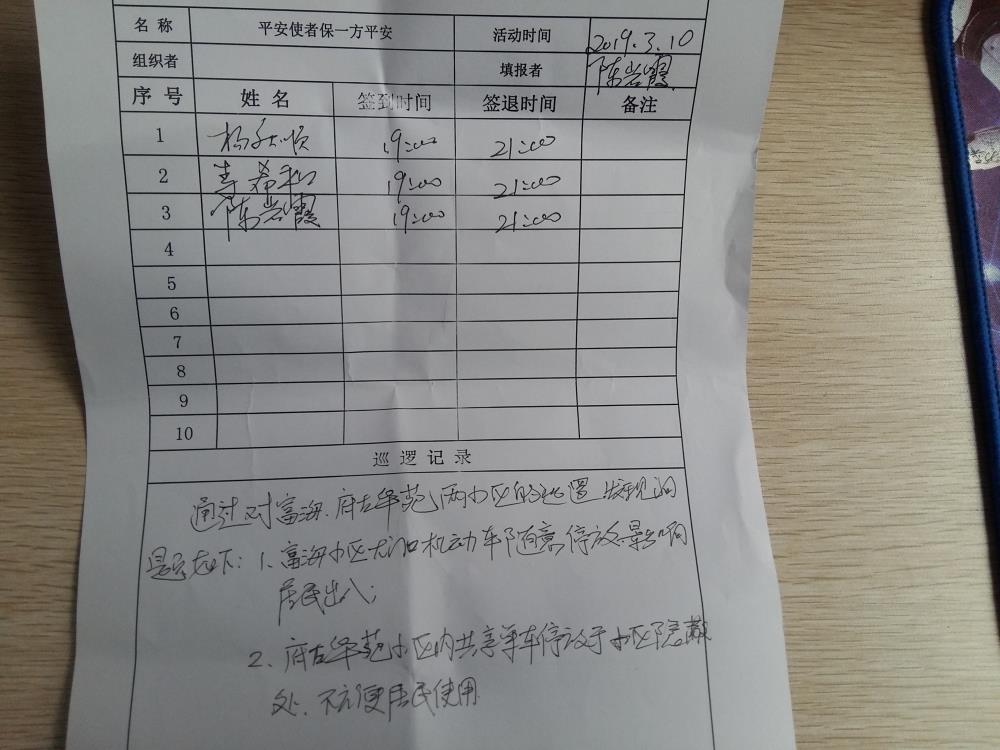 名 称 平安使者保一方平安 活动时间 2019.3.10
组织者 填报者 陈岩霞
序 号 姓 名 签到时间 签退时间 备注
1 顺 19:00 21:00
2 希 19:00 21:00
3 陈岩霞 19:00 21:00
4
5
6
7
8
9
10
巡 逻 记 录
通过对富海、府左华苑两小区的巡逻,发现问
题如下:1、富海小区大门口机动车随意停放,影响
居民出入;
2、府左华苑小区内共享单车停放于小区隐蔽
处、不方便居民使用